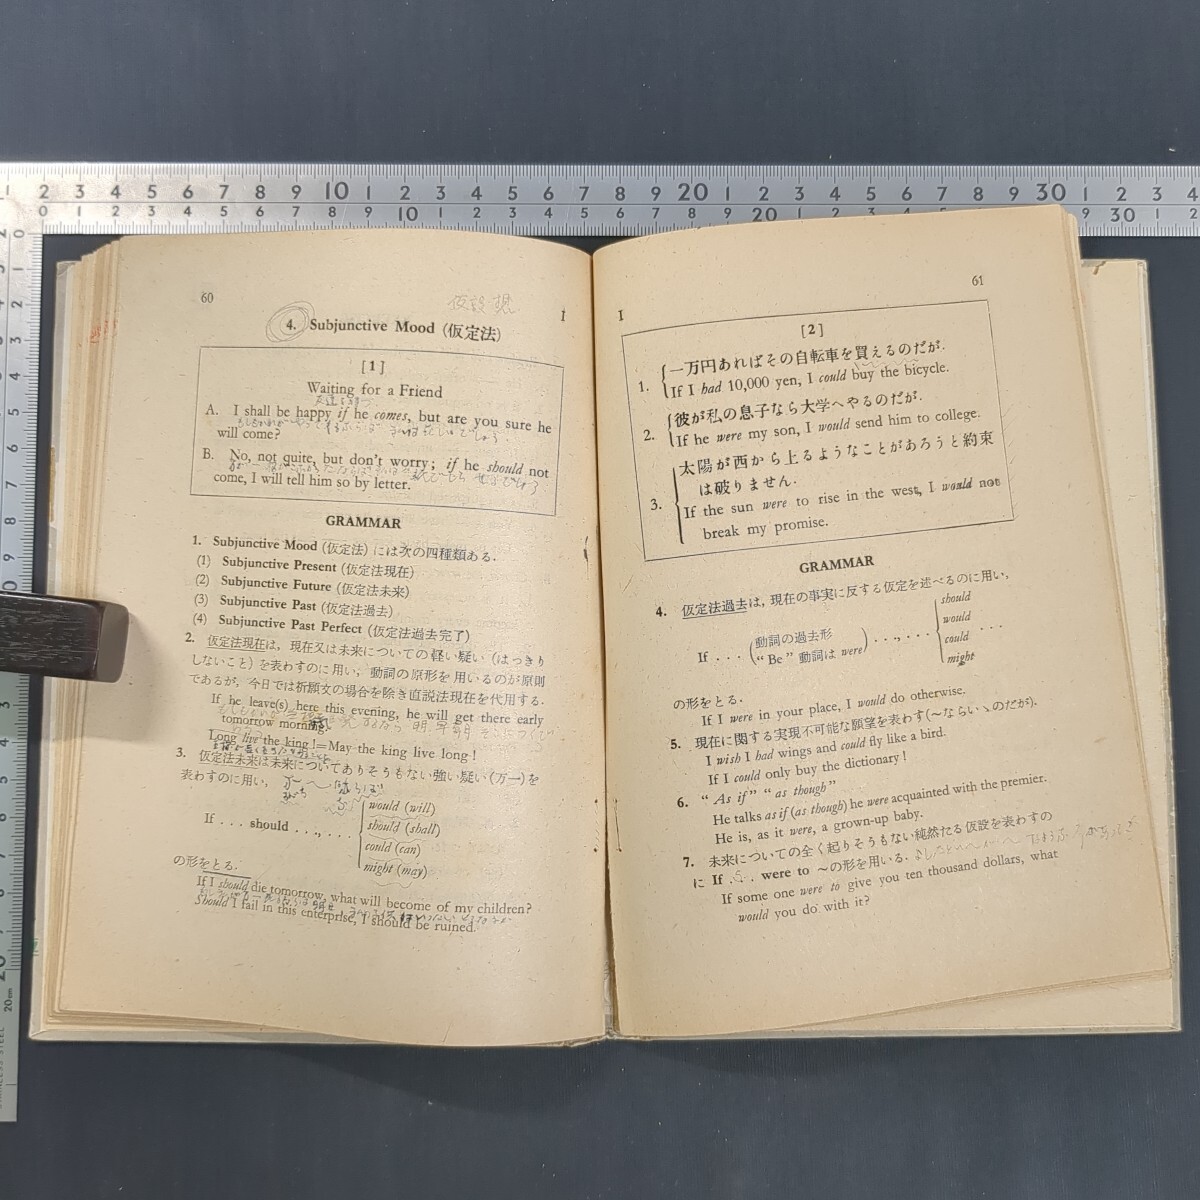 60
4. Subjunctive Mood (仮定法)
[1]
Waiting for a Friend
A. I shall be happy if he comes, but are you sure he
will come?
B. No, not quite, but don't worry; if he should not
come, I will tell him so by letter.
GRAMMAR
1. Subjunctive Mood (仮定法) には次の四種類ある.
(1) Subjunctive Present (仮定法現在)
(2) Subjunctive Future (仮定法未来)
(3) Subjunctive Past (仮定法過去)
(4) Subjunctive Past Perfect (仮定法過去完了)
2. 仮定法現在は, 現在又は未来についての軽い疑い (はっきり
しないこと) を表わすのに用い, 動詞の原形を用いるのが原則
であるが, 今日では祈願文の場合を除き直説法現在を代用する.
If he leave(s) here this evening, he will get there early
tomorrow morning.
Long live the king!=May the king live long!
3. 仮定法未来は未来についてありそうもない強い疑い (万一) を
表わすのに用い,
If . . . should . . ., . . .
would (will)
should (shall)
could (can)
might (may)
の形をとる.
If I should die tomorrow, what will become of my children?
Should I fail in this enterprise, I should be ruined.
I
I
61
[2]
1. 一万円あればその自転車を買えるのだが.
If I had 10,000 yen, I could buy the bicycle.
2. 彼が私の息子なら大学へやるのだが.
If he were my son, I would send him to college.
3. 太陽が西から上るようなことがあろうと約束
は破りません.
If the sun were to rise in the west, I would not
break my promise.
GRAMMAR
4. 仮定法過去は, 現在の事実に反する仮定を述べるのに用い,
If . . . (動詞の過去形
"Be" 動詞は were) . . ., . . .
should
would
could
might
. . .
の形をとる.
If I were in your place, I would do otherwise.
5. 現在に関する実現不可能な願望を表わす(〜ならいゝのだが).
I wish I had wings and could fly like a bird.
If I could only buy the dictionary!
6. "As if" "as though"
He talks as if (as though) he were acquainted with the premier.
He is, as it were, a grown-up baby.
7. 未来についての全く起りそうもない純然たる仮設を表わすの
に If . . . were to 〜の形を用いる.
If some one were to give you ten thousand dollars, what
would you do with it?